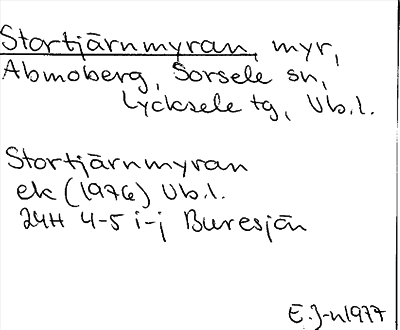 Stortjärnmyran, myr,
Abmoberg, Sorsele sn,
Lycksele tg, Vb.l.
Stortjärnmyran
ek (1976) Vb.l.
24H 4-5 i-j Buresjön
E.J-n 1977